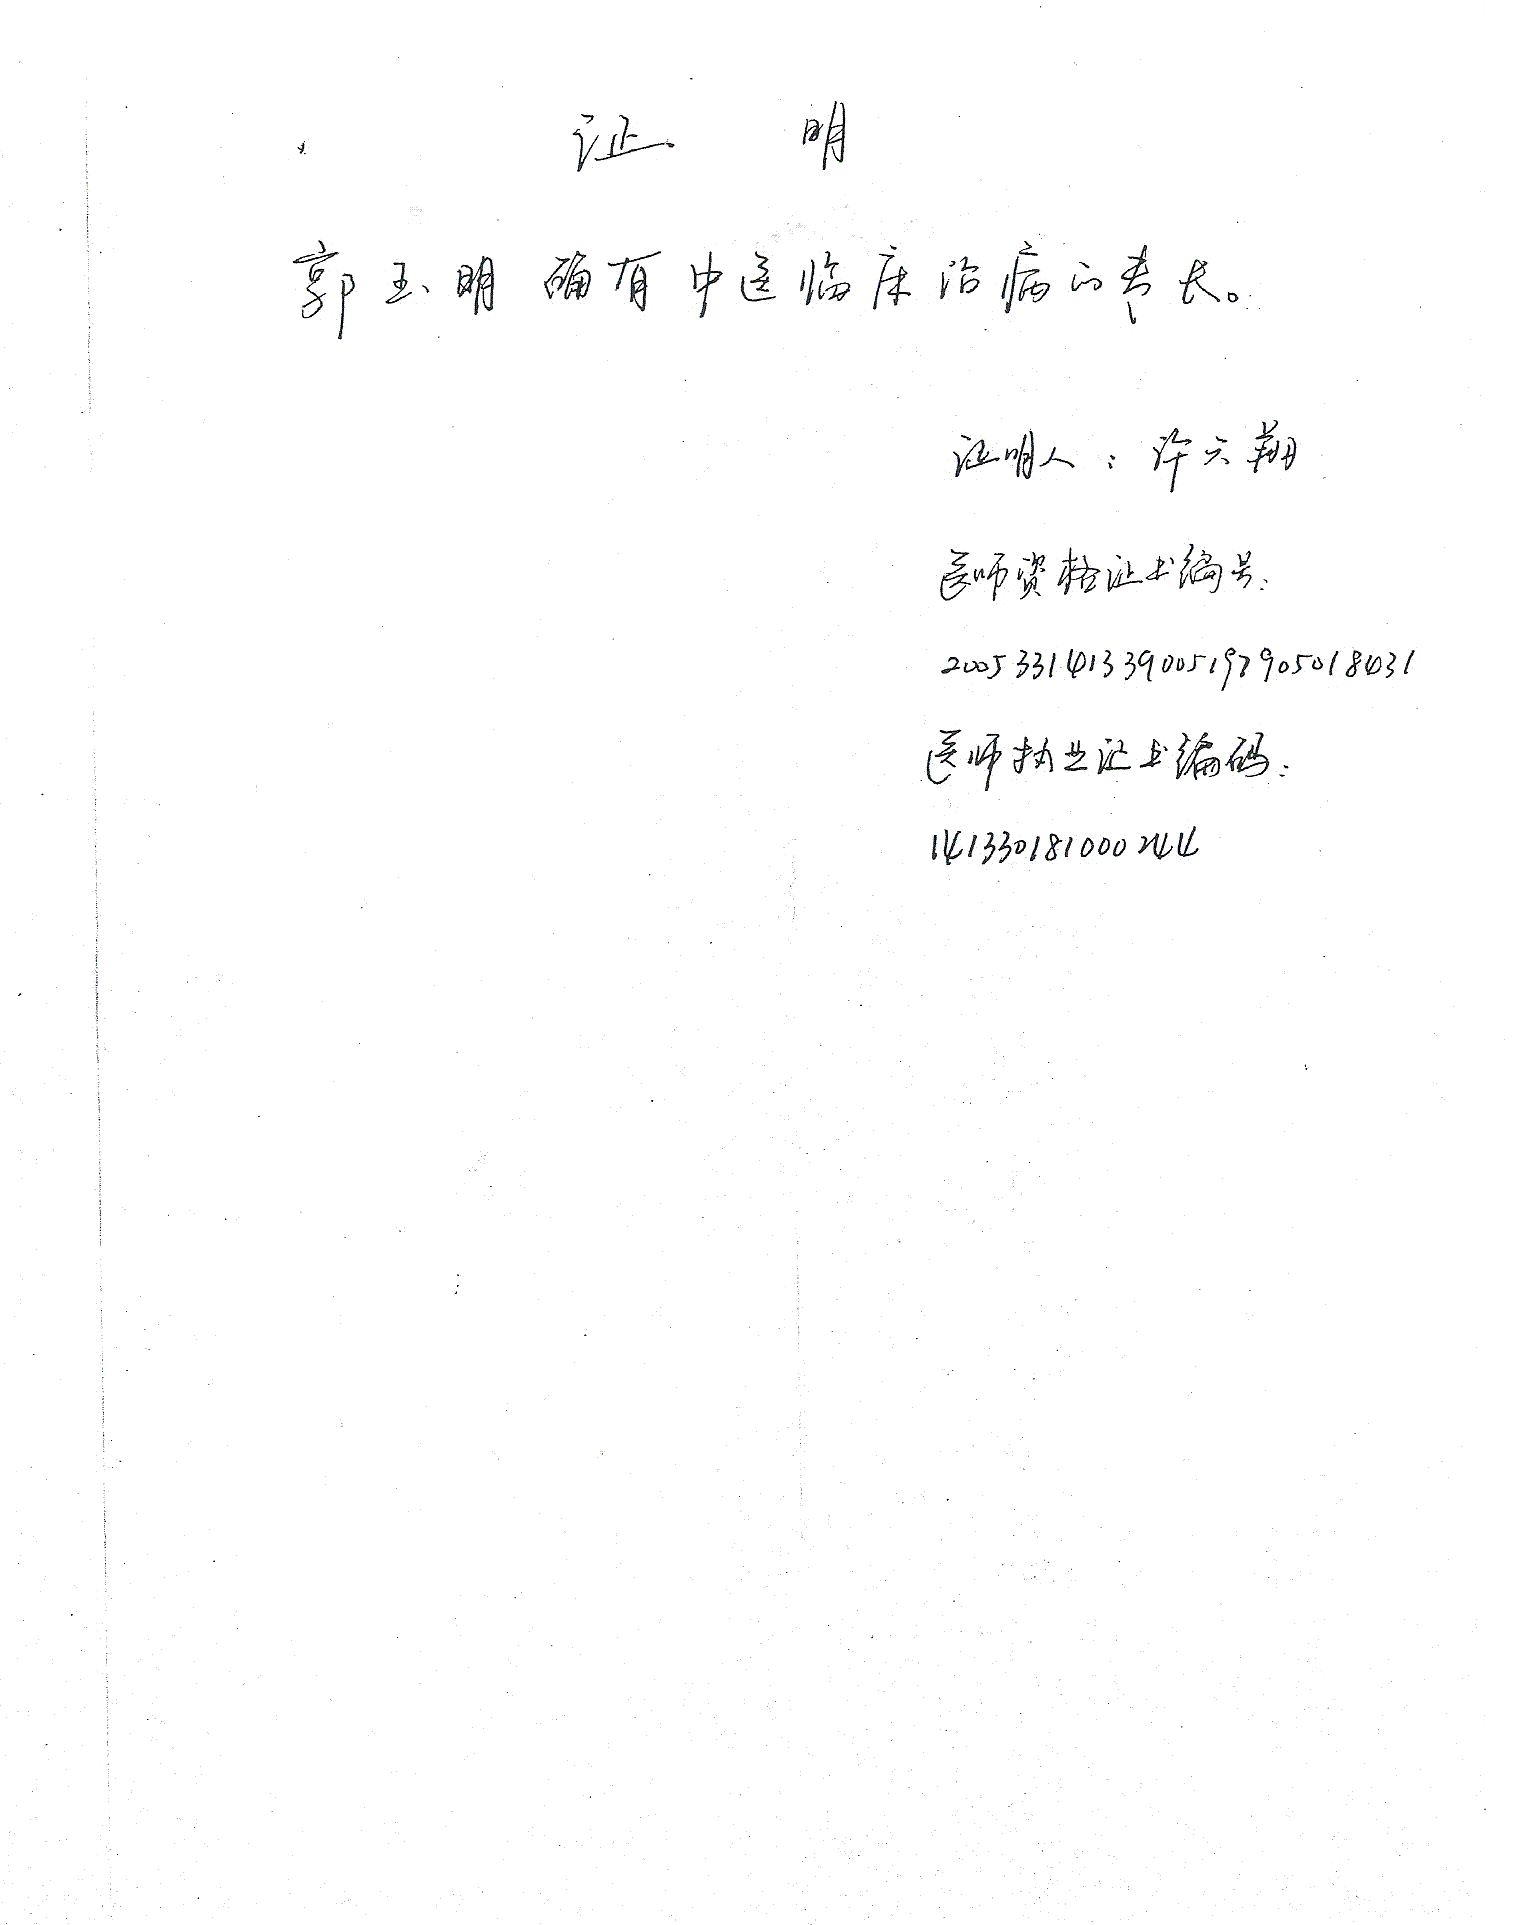 证 明
郭玉明确有中医临床治病的专长。
证明人：许云翔
医师资格证书编号：
200533141339005197905018431
医师执业证书编码：
141330181000244